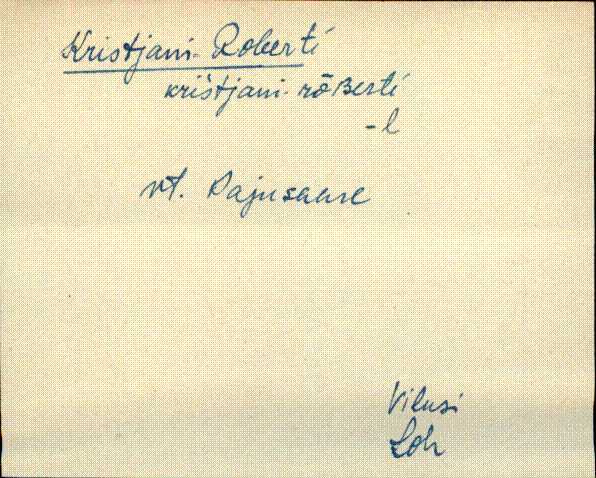 Kristjani-Roberti
kristjani-rōʙerti
-l
vt. Pajusaare
Vilusi
Loh